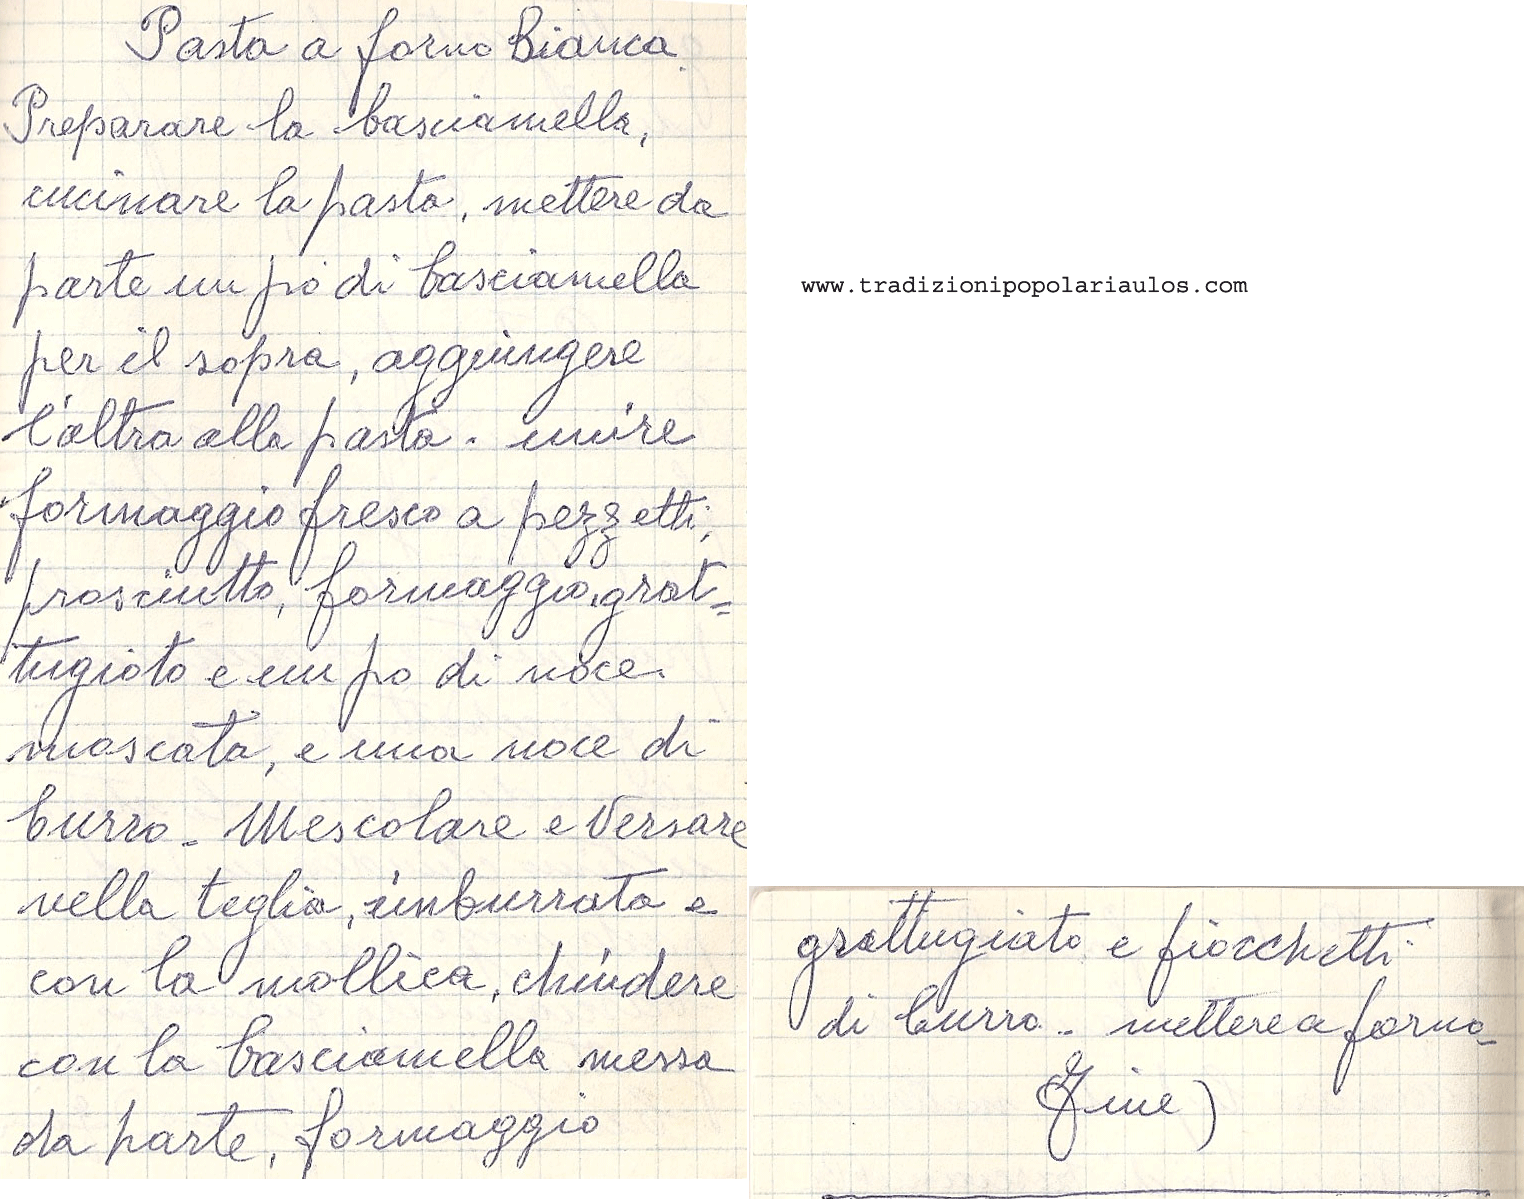 Pasta a forno Bianca.
Preparare la basciamella,
cucinare la pasta, mettere da
parte un pò di basciamella
per il sopra, aggiungere
l'altra alla pasta. unire
formaggio fresco a pezzetti,
prosciutto, formaggio grat=
tugiato e un po di noce
moscata, e una noce di
burro - Mescolare e Versare
nella teglia, imburrata e
con la mollica, chiudere
con la basciamella messa
da parte, formaggio
grattugiato e fiocchetti
di burro - mettere a forno -
Fine)
www.tradizionipopolariaulos.com